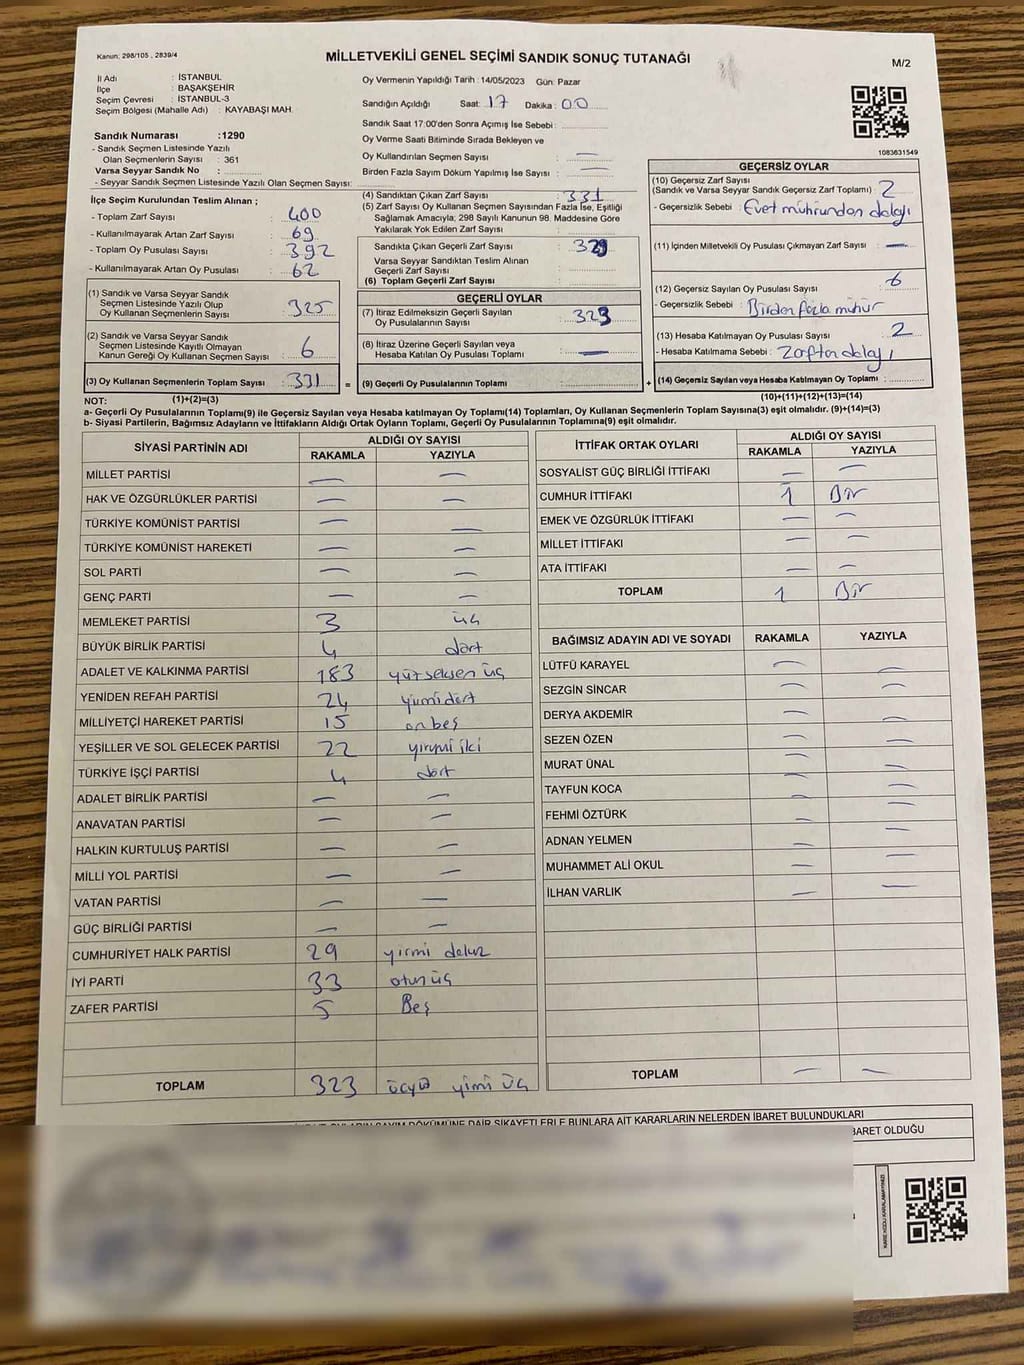 Kanun: 298/105 , 2839/4
MİLLETVEKİLİ GENEL SEÇİMİ SANDIK SONUÇ TUTANAĞI
M/2
İl Adı : İSTANBUL
İlçe : BAŞAKŞEHİR
Seçim Çevresi : İSTANBUL-3
Seçim Bölgesi (Mahalle Adı) : KAYABAŞI MAH.
Sandık Numarası :1290
- Sandık Seçmen Listesinde Yazılı
Olan Seçmenlerin Sayısı : 361
Varsa Seyyar Sandık No :
- Seyyar Sandık Seçmen Listesinde Yazılı Olan Seçmen Sayısı:
Oy Vermenin Yapıldığı Tarih : 14/05/2023 Gün: Pazar
Sandığın Açıldığı Saat: 17 Dakika : 00
Sandık Saat 17:00'den Sonra Açmış İse Sebebi :
Oy Verme Saati Bitiminde Sırada Bekleyen ve
Oy Kullandırılan Seçmen Sayısı : —
Birden Fazla Sayım Döküm Yapılmış İse Sayısı : —
1083631549
İlçe Seçim Kurulundan Teslim Alınan ;
- Toplam Zarf Sayısı : 400
- Kullanılmayarak Artan Zarf Sayısı : 69
- Toplam Oy Pusulası Sayısı : 392
- Kullanılmayarak Artan Oy Pusulası : 62
(1) Sandık ve Varsa Seyyar Sandık
Seçmen Listesinde Yazılı Olup
Oy Kullanan Seçmenlerin Sayısı : 325
(2) Sandık ve Varsa Seyyar Sandık
Seçmen Listesinde Kayıtlı Olmayan
Kanun Gereği Oy Kullanan Seçmen Sayısı : 6
(3) Oy Kullanan Seçmenlerin Toplam Sayısı : 331 =
(4) Sandıktan Çıkan Zarf Sayısı : 331
(5) Zarf Sayısı Oy Kullanan Seçmen Sayısından Fazla İse, Eşitliği
Sağlamak Amacıyla; 298 Sayılı Kanunun 98. Maddesine Göre
Yakılarak Yok Edilen Zarf Sayısı :
Sandıkta Çıkan Geçerli Zarf Sayısı : 329
Varsa Seyyar Sandıktan Teslim Alınan
Geçerli Zarf Sayısı :
(6) Toplam Geçerli Zarf Sayısı :
GEÇERLİ OYLAR
(7) İtiraz Edilmeksizin Geçerli Sayılan
Oy Pusulalarının Sayısı : 323
(8) İtiraz Üzerine Geçerli Sayılan veya
Hesaba Katılan Oy Pusulası Toplamı : —
(9) Geçerli Oy Pusulalarının Toplamı : +
GEÇERSİZ OYLAR
(10) Geçersiz Zarf Sayısı
(Sandık ve Varsa Seyyar Sandık Geçersiz Zarf Toplamı) : 2
- Geçersizlik Sebebi : Evet mühründen dolayı
(11) İçinden Milletvekili Oy Pusulası Çıkmayan Zarf Sayısı : —
(12) Geçersiz Sayılan Oy Pusulası Sayısı : 6
- Geçersizlik Sebebi : Birden fazla mühür
(13) Hesaba Katılmayan Oy Pusulası Sayısı : 2
- Hesaba Katılmama Sebebi : Zaftan dolayı
(14) Geçersiz Sayılan veya Hesaba Katılmayan Oy Toplamı :
NOT: (1)+(2)=(3) (10)+(11)+(12)+(13)=(14)
a- Geçerli Oy Pusulalarının Toplamı(9) ile Geçersiz Sayılan veya Hesaba katılmayan Oy Toplamı(14) Toplamları, Oy Kullanan Seçmenlerin Toplam Sayısına(3) eşit olmalıdır. (9)+(14)=(3)
b- Siyasi Partilerin, Bağımsız Adayların ve İttifakların Aldığı Ortak Oyların Toplamı, Geçerli Oy Pusulalarının Toplamına(9) eşit olmalıdır.
SİYASİ PARTİNİN ADI ALDIĞI OY SAYISI
RAKAMLA YAZIYLA
MİLLET PARTİSİ — —
HAK VE ÖZGÜRLÜKLER PARTİSİ — —
TÜRKİYE KOMÜNİST PARTİSİ — —
TÜRKİYE KOMÜNİST HAREKETİ — —
SOL PARTİ — —
GENÇ PARTİ — —
MEMLEKET PARTİSİ 3 üç
BÜYÜK BİRLİK PARTİSİ 4 dört
ADALET VE KALKINMA PARTİSİ 183 yüzseksen üç
YENİDEN REFAH PARTİSİ 24 yirmidört
MİLLİYETÇİ HAREKET PARTİSİ 15 onbeş
YEŞİLLER VE SOL GELECEK PARTİSİ 22 yirmi iki
TÜRKİYE İŞÇİ PARTİSİ 4 dört
ADALET BİRLİK PARTİSİ — —
ANAVATAN PARTİSİ — —
HALKIN KURTULUŞ PARTİSİ — —
MİLLİ YOL PARTİSİ — —
VATAN PARTİSİ — —
GÜÇ BİRLİĞİ PARTİSİ — —
CUMHURİYET HALK PARTİSİ 29 yirmi dokuz
İYİ PARTİ 33 otuz üç
ZAFER PARTİSİ 5 Beş
TOPLAM 323 üçyüz yirmi üç
İTTİFAK ORTAK OYLARI ALDIĞI OY SAYISI
RAKAMLA YAZIYLA
SOSYALİST GÜÇ BİRLİĞİ İTTİFAKI — —
CUMHUR İTTİFAKI 1 Bir
EMEK VE ÖZGÜRLÜK İTTİFAKI — —
MİLLET İTTİFAKI — —
ATA İTTİFAKI — —
TOPLAM 1 Bir
BAĞIMSIZ ADAYIN ADI VE SOYADI RAKAMLA YAZIYLA
LÜTFÜ KARAYEL — —
SEZGİN SİNCAR — —
DERYA AKDEMİR — —
SEZEN ÖZEN — —
MURAT ÜNAL — —
TAYFUN KOCA — —
FEHMİ ÖZTÜRK — —
ADNAN YELMEN — —
MUHAMMET ALİ OKUL — —
İLHAN VARLIK — —
TOPLAM — —
OYLARIN SAYIM DÖKÜMÜNE DAİR ŞİKAYETLERLE BUNLARA AİT KARARLARIN NELERDEN İBARET BULUNDUKLARI
BARET OLDUĞU
KARE KODU KARALAMAYINIZ